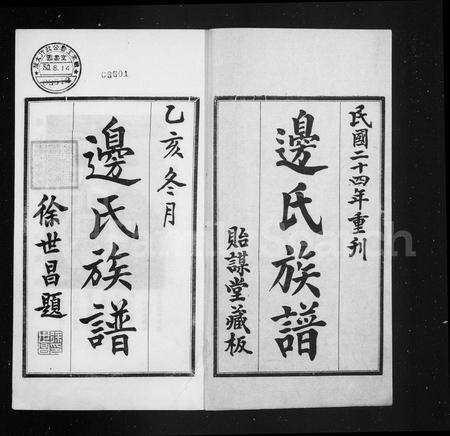 民國二十四年重刊
邊氏族譜
貽謀堂藏板
乙亥冬月
邊氏族譜
徐世昌題
00001
80.8.14